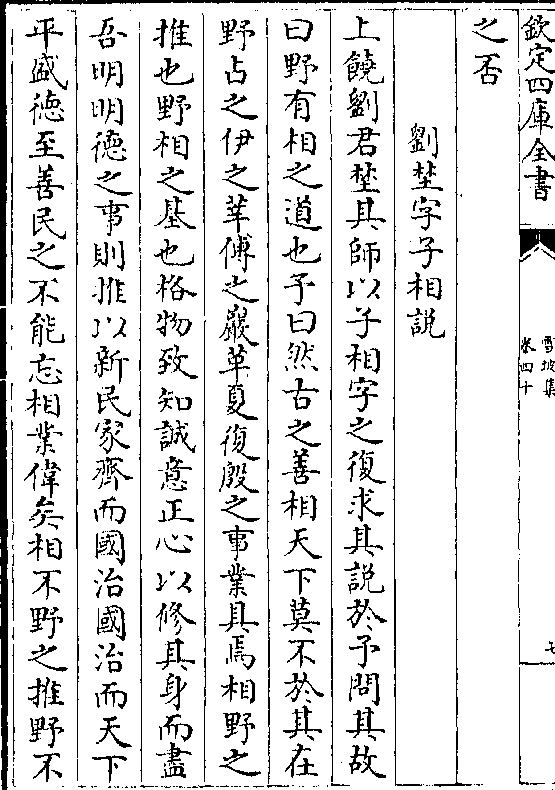 欽定四庫全書
雪坡集
卷四十
七
之否
劉埜字子相說
上饒劉君埜其師以子相字之復求其說於予問其故
曰野有相之道也予曰然古之善相天下莫不於其在
野占之伊之莘傅之巖革夏復殷之事業具焉相野之
推也野相之基也格物致知誠意正心以修其身而盡
吾明明德之事則推以新民家齊而國治國治而天下
平盛德至善民之不能忘相業偉矣相不野之推野不